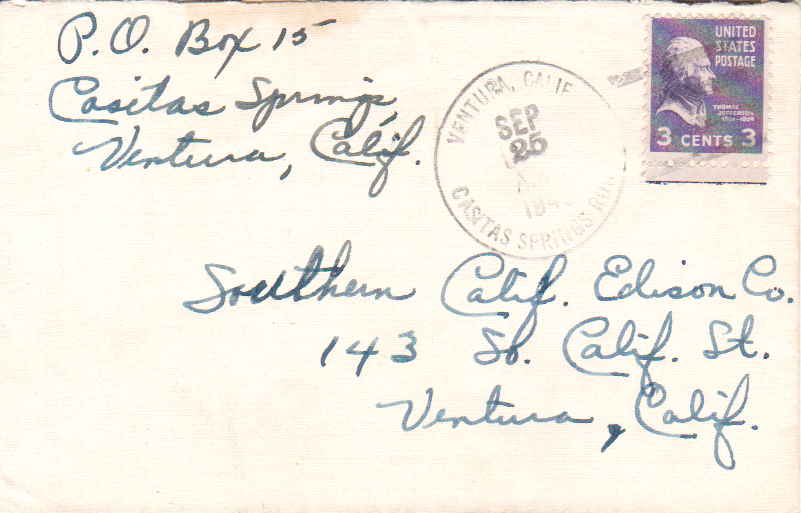 P.O. Box 15
Casitas Springs,
Ventura, Calif.
VENTURA, CALIF
SEP
25
CASITAS SPRINGS
UNITED
STATES
POSTAGE
THOMAS
JEFFERSON
3 CENTS 3
Southern Calif. Edison Co.
143 So. Calif. St.
Ventura, Calif.